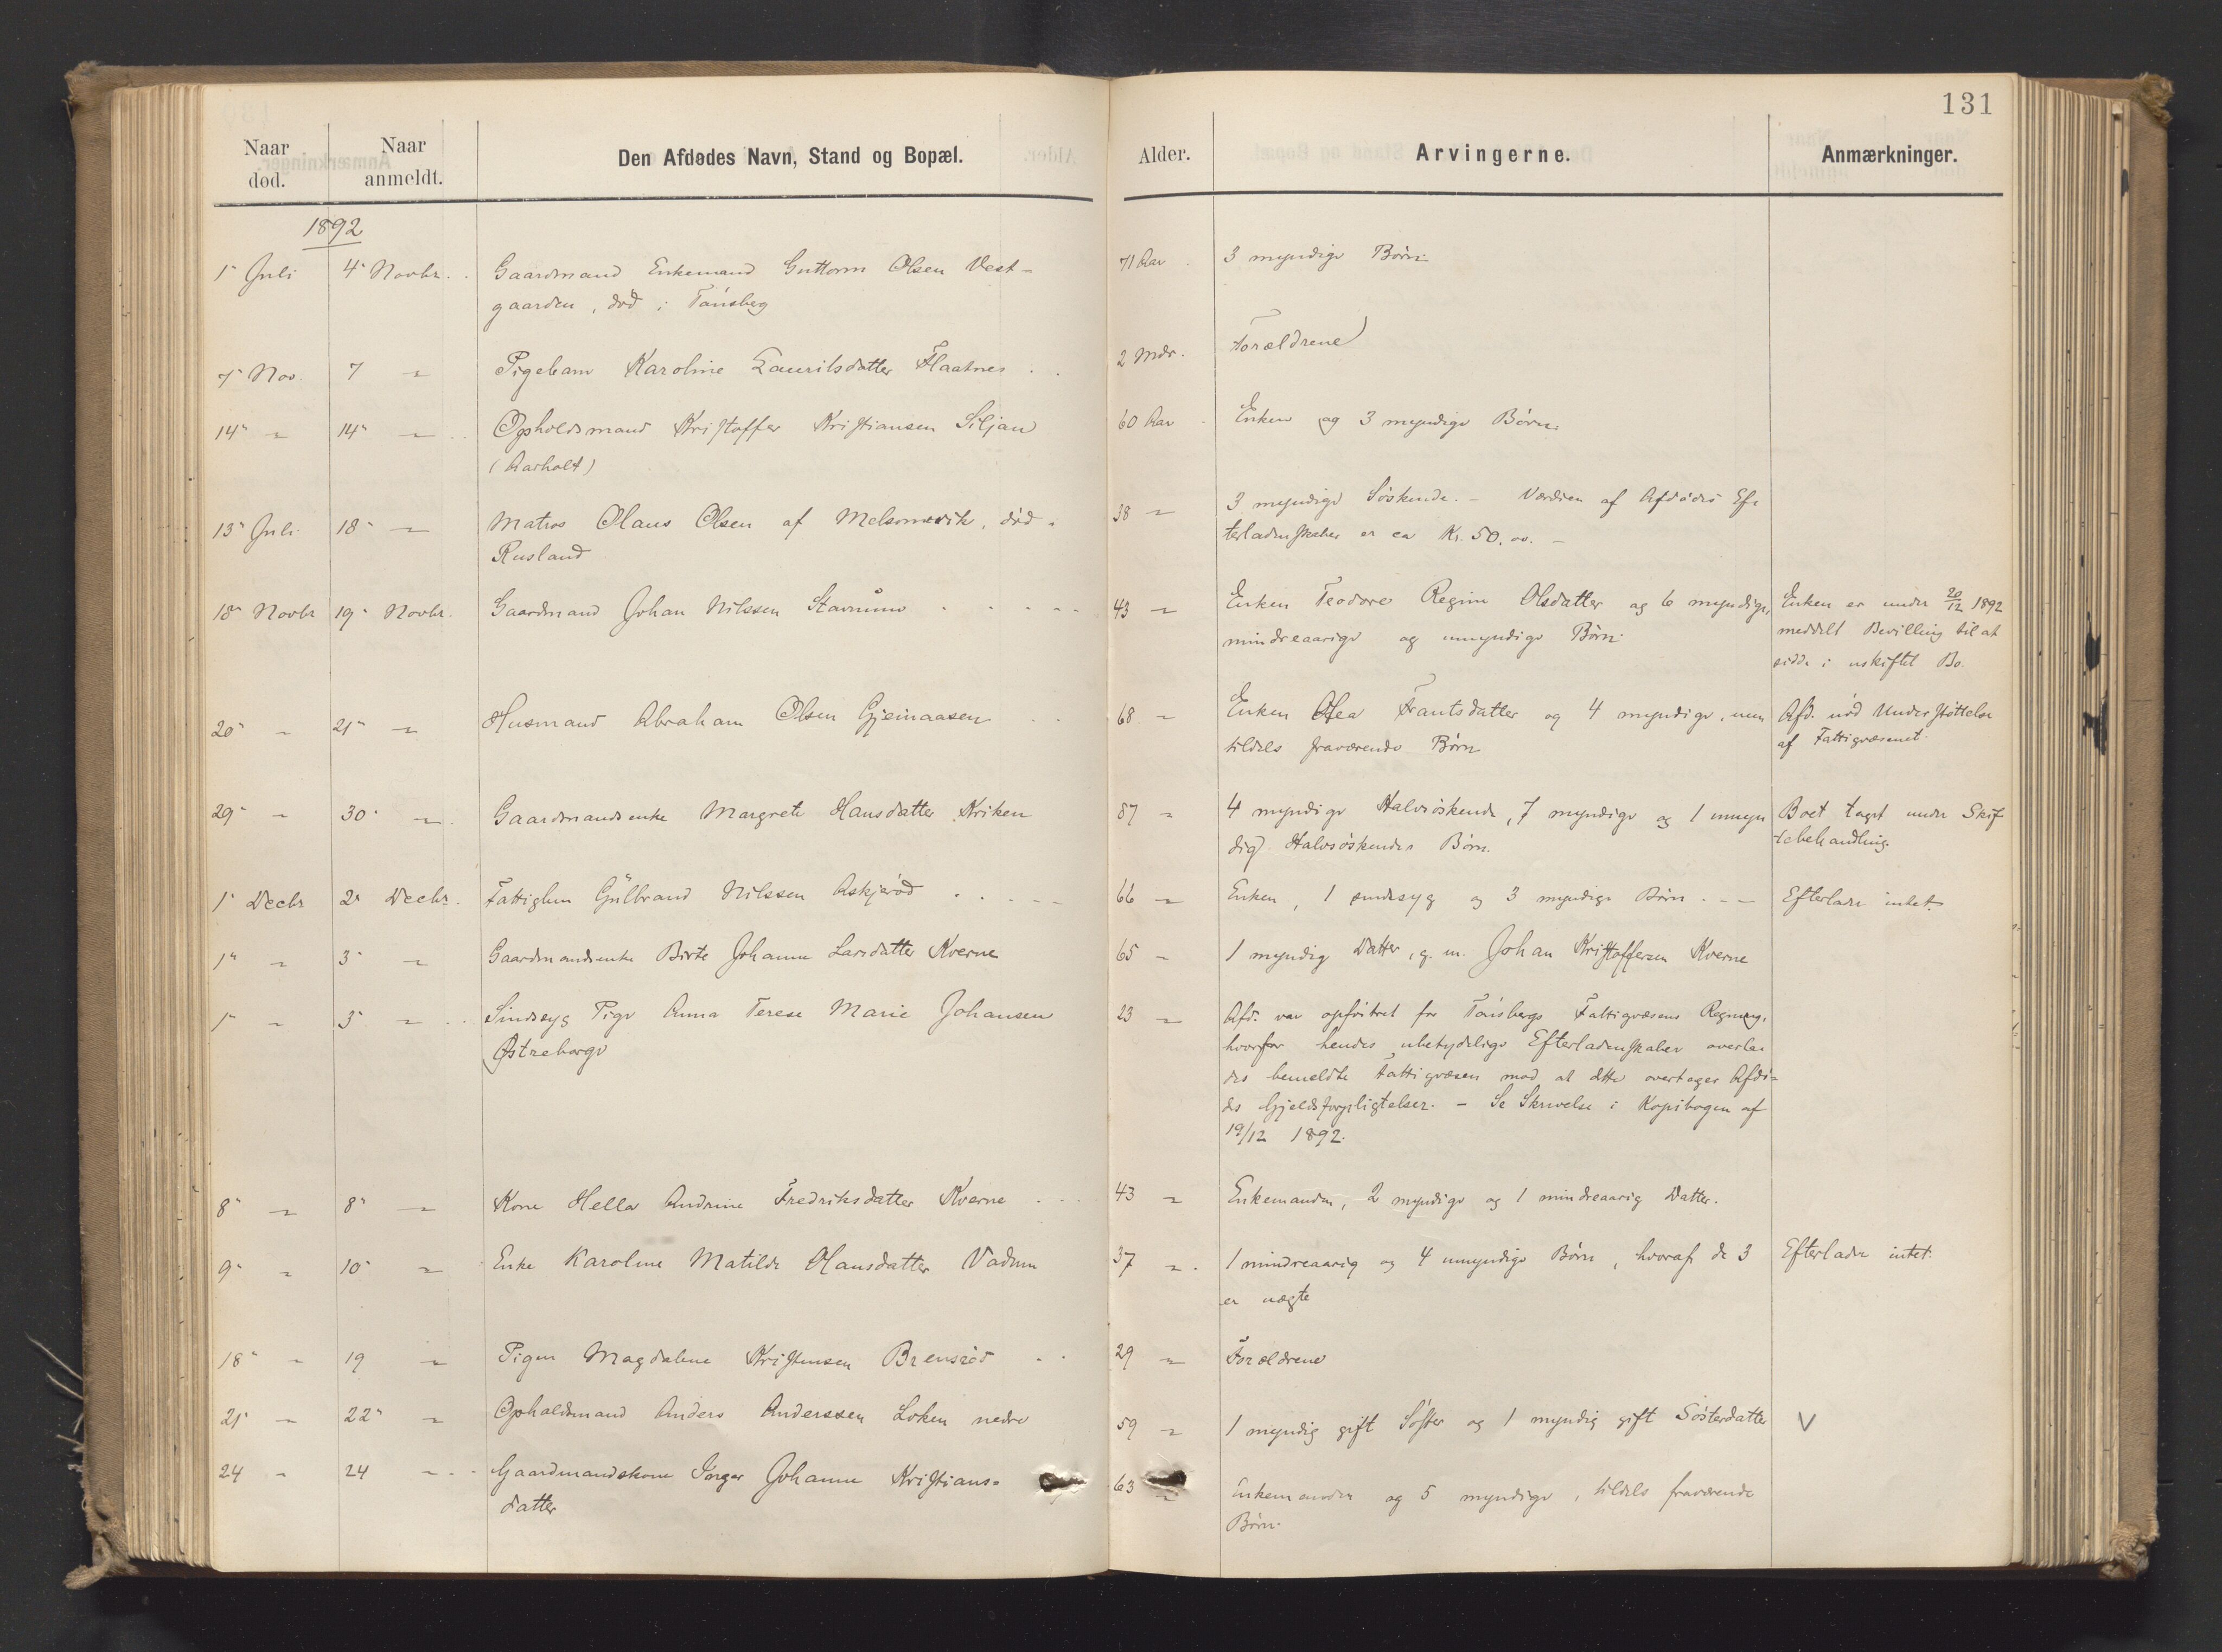 131
Naar død. Naar anmeldt. Den Afdødes Navn, Stand og Bopæl. Alder. Arvingerne. Anmærkninger.
1892
1" Juli 4" Novbr. Gaardmand Enkemand Guttorm Olsen Vest- 71 Aar 3 myndige Børn
gaarden, død i Tønsberg
7" Nov. 7 " Pigebarn Karoline Lauritsdatter Flaatnes 2 Mdr. Forældrene
14" " 14" " Opholdsmand Kristoffer Kristiansen Siljan 60 Aar Enken og 3 myndige Børn.
(Aarholt)
13" Juli 18" " Matros Olaus Olsen af Melsomvik, død i 38 " 3 myndige Søskende. - Værdien af Afdødes Ef-
Rusland terladenskaber er ca Kr. 50.00. -
18" Novbr 19" Novbr. Gaardmand Johan Nilssen Stavnum 43 " Enken Teodore Regine Olsdatter og 6 myndige, Enken er under 20/12 1892
mindreaarige og umyndige Børn. meddelt Bevilling til at
sidde i uskiftet Bo.
20" " 21" " Husmand Abraham Olsen Gjeinaasen 68 " Enken Olea Frantsdatter og 4 myndige, men Afd. nød Understøttelse
tildels fraværende Børn af Fattigvæsenet.
29" " 30" " Gaardmandsenke Margrete Hansdatter Kriken 87 " 4 myndige Halvsøskende, 7 myndige og 1 umyn Boet taget under Skif
dig Halvsøskendes Børn. tebehandling.
1" Decbr 2" Decbr. Fattiglem Gulbrand Nilssen Askjerød 66 " Enken, 1 sindssyg og 3 myndige Børn. - - Efterlader intet.
1" " 3" " Gaardmandsenke Birte Johanne Larsdatter Kverne 65 " 1 myndig Datter, g. m. Johan Kristoffersen Kverne
1" " 3" " Sindssyg Pige Anna Terese Marie Johansen 23 " Afd. var opføstret for Tønsbergs Fattigvæsens Regning,
Østreborge hvorfor hendes ubetydelige Efterladenskaber overla-
des bemeldte Fattigvæsen mod at dette overtager Afdø-
des Gjeldsforpligtelser. - Se Skrivelse i Kopibogen af
19/12 1892.
8" " 8" " Kone Hella Andrine Fredriksdatter Kverne 43 " Enkemanden, 2 myndige og 1 mindreaarig Datter.
9" " 10" " Enke Karoline Matilde Hansdatter Vadum 37 " 1 mindreaarig og 4 umyndige Børn, hvoraf de 3 Efterlader intet.
er uægte
18" " 19 " Pigen Magdalene Kristensen Brensrød 29 " Forældrene
21" " 22" " Opholdsmand Anders Anderssen Løken nedre 59 " 1 myndig gift Søster og 1 myndig gift Søsterdatter V
24 " 24 " Gaardmandskone Inger Johanne Kristians- 63 " Enkemanden og 5 myndige, tildels fraværende
datter Børn.